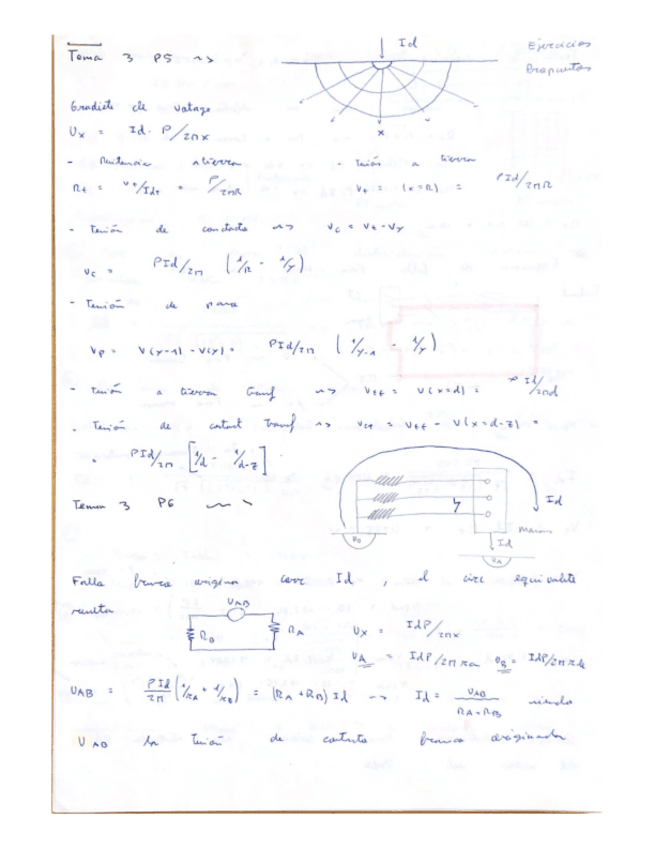 Tema 3 P5 ~>
Id
Ejercicios
Propuestos
x
Gradiente de voltage
Ux = Id · ρ/2πx
- Resistencia a tierra
- Tensión a tierra
Rt = Vt/Idt = ρ/2πR
Vt = (x=R) = ρId/2πR
- Tensión de contacto ~> Vc = Vt - Vy
Vc = ρId/2π (1/R - 1/y)
- Tensión de paso
Vp = V(y-1) - V(y) = ρId/2π (1/y-1 - 1/y)
- Tensión a tierra transf ~> Vtt = V(x=d) = ρ Id/2πd
- Tensión de contact transf ~> Vct = Vtt - V(x=d-z) =
= ρId/2π [1/d - 1/d-z]
Tema 3 P6 ~>
Id
Id
RB
RA
Falla franca origina corr Id, el circ equivalente
resulta
UAB
RB
RA
Ux = Idρ/2πx
UA = Idρ/2πrA
UB = Idρ/2πrB
UAB = ρId/2π (1/rA + 1/rB) = (RA + RB) Id ~> Id = UAB/RA+RB siendo
UAB la tensión de contacto franco originador